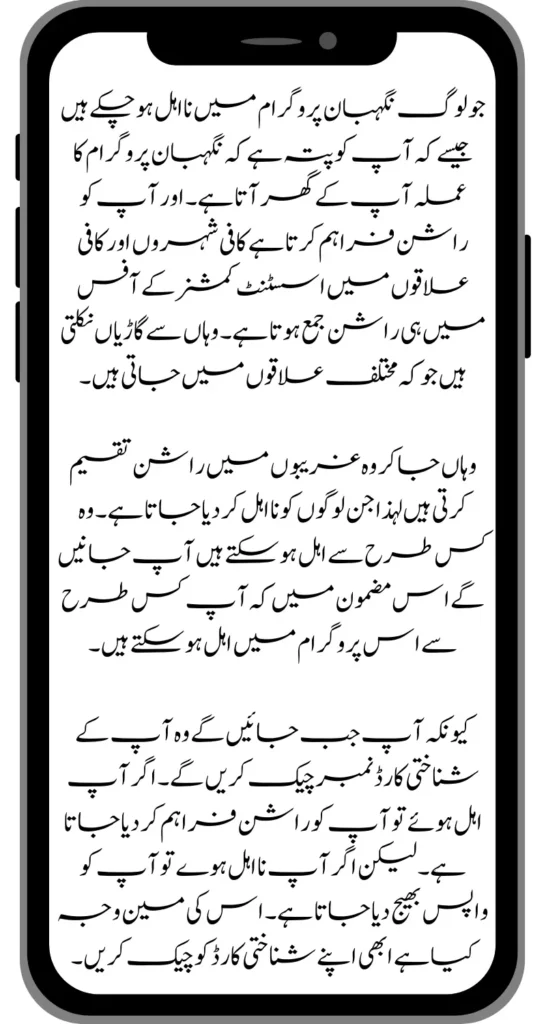 جو لوگ نگہبان پروگرام میں نااہل ہو چکے ہیں
جیسے کہ آپ کو پتہ ہے کہ نگہبان پروگرام کا
عملہ آپ کے گھر آتا ہے۔ اور آپ کو
راشن فراہم کرتا ہے کافی شہروں اور کافی
علاقوں میں اسسٹنٹ کمشنر کے آفس
میں ہی راشن جمع ہوتا ہے۔ وہاں سے گاڑیاں نکلتی
ہیں جو کہ مختلف علاقوں میں جاتی ہیں۔
وہاں جا کر وہ غریبوں میں راشن تقسیم
کرتی ہیں لہذا جن لوگوں کو نااہل کر دیا جاتا ہے۔ وہ
کس طرح سے اہل ہو سکتے ہیں آپ جانیں
گے اس مضمون میں کہ آپ کس طرح
سے اس پروگرام میں اہل ہو سکتے ہیں۔
کیونکہ آپ جب جائیں گے وہ آپ کے
شناختی کارڈ نمبر چیک کریں گے۔ اگر آپ
اہل ہوئے تو آپ کو راشن فراہم کر دیا جاتا
ہے۔ لیکن اگر آپ نااہل ہوے تو آپ کو
واپس بھیج دیا جاتا ہے۔ اس کی مین وجہ
کیا ہے ابھی اپنے شناختی کارڈ کو چیک کریں۔